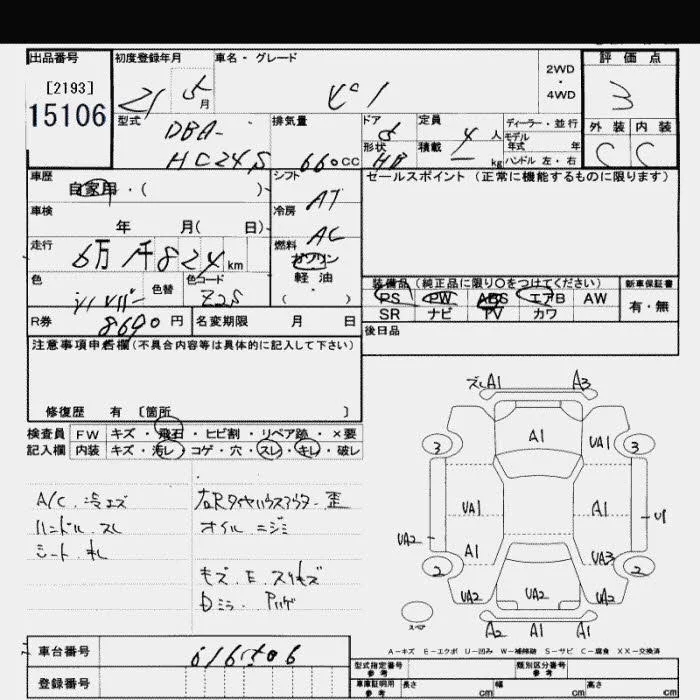 出品番号 初度登録年月 車名・グレード 評価点
[2193] 21 5月 2WD・4WD 3
15106
型式 排気量 ドア 定員 ディーラー・並行 外装 内装
DBA- 5 4人 モデル年式 年
HC24S 660cc 形状 HB 積載 kg ハンドル 左・右 C C
車歴 自家用・( ) シフト AT セールスポイント(正常に機能するものに限ります)
車検 年 月( 日) 冷房 AC
走行 6万1千824km 燃料 ガソリン
軽油・( )
色 シルバー 色替 色コード Z2S
装備品(純正品に限り○をつけてください) 新車保証書
PS PW ABS エアB AW 有・無
SR ナビ TV カワ
R券 8690円 名変期限 月 日
後日品
注意事項申告欄(不具合内容等は具体的に記入して下さい)
修復歴 有 〔箇所 〕
検査員 FW キズ・飛石・ヒビ割・リペア跡・×要
記入欄 内装 キズ・汚レ・コゲ・穴・スレ・キレ・破レ
A/C.冷エズ
ハンドル.スレ
オイル ニジミ
A1 A3
A1 UA1
3 3
UA1 A1
UA2 U1
A1 UA3
2 2
UA2 UA2 UA2
スペア
A2 A1 A1
A-キズ E-エクボ U-凹み W-補修跡 S-サビ C-腐食 XX-交換済
車台番号
登録番号
型式指定番号 参考 類別区分番号 参考
車庫証明用 参考 長さ cm 幅 cm 高さ cm